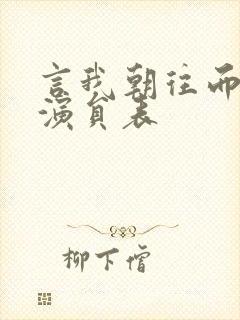 言我朝往而
演员表
柳下僧